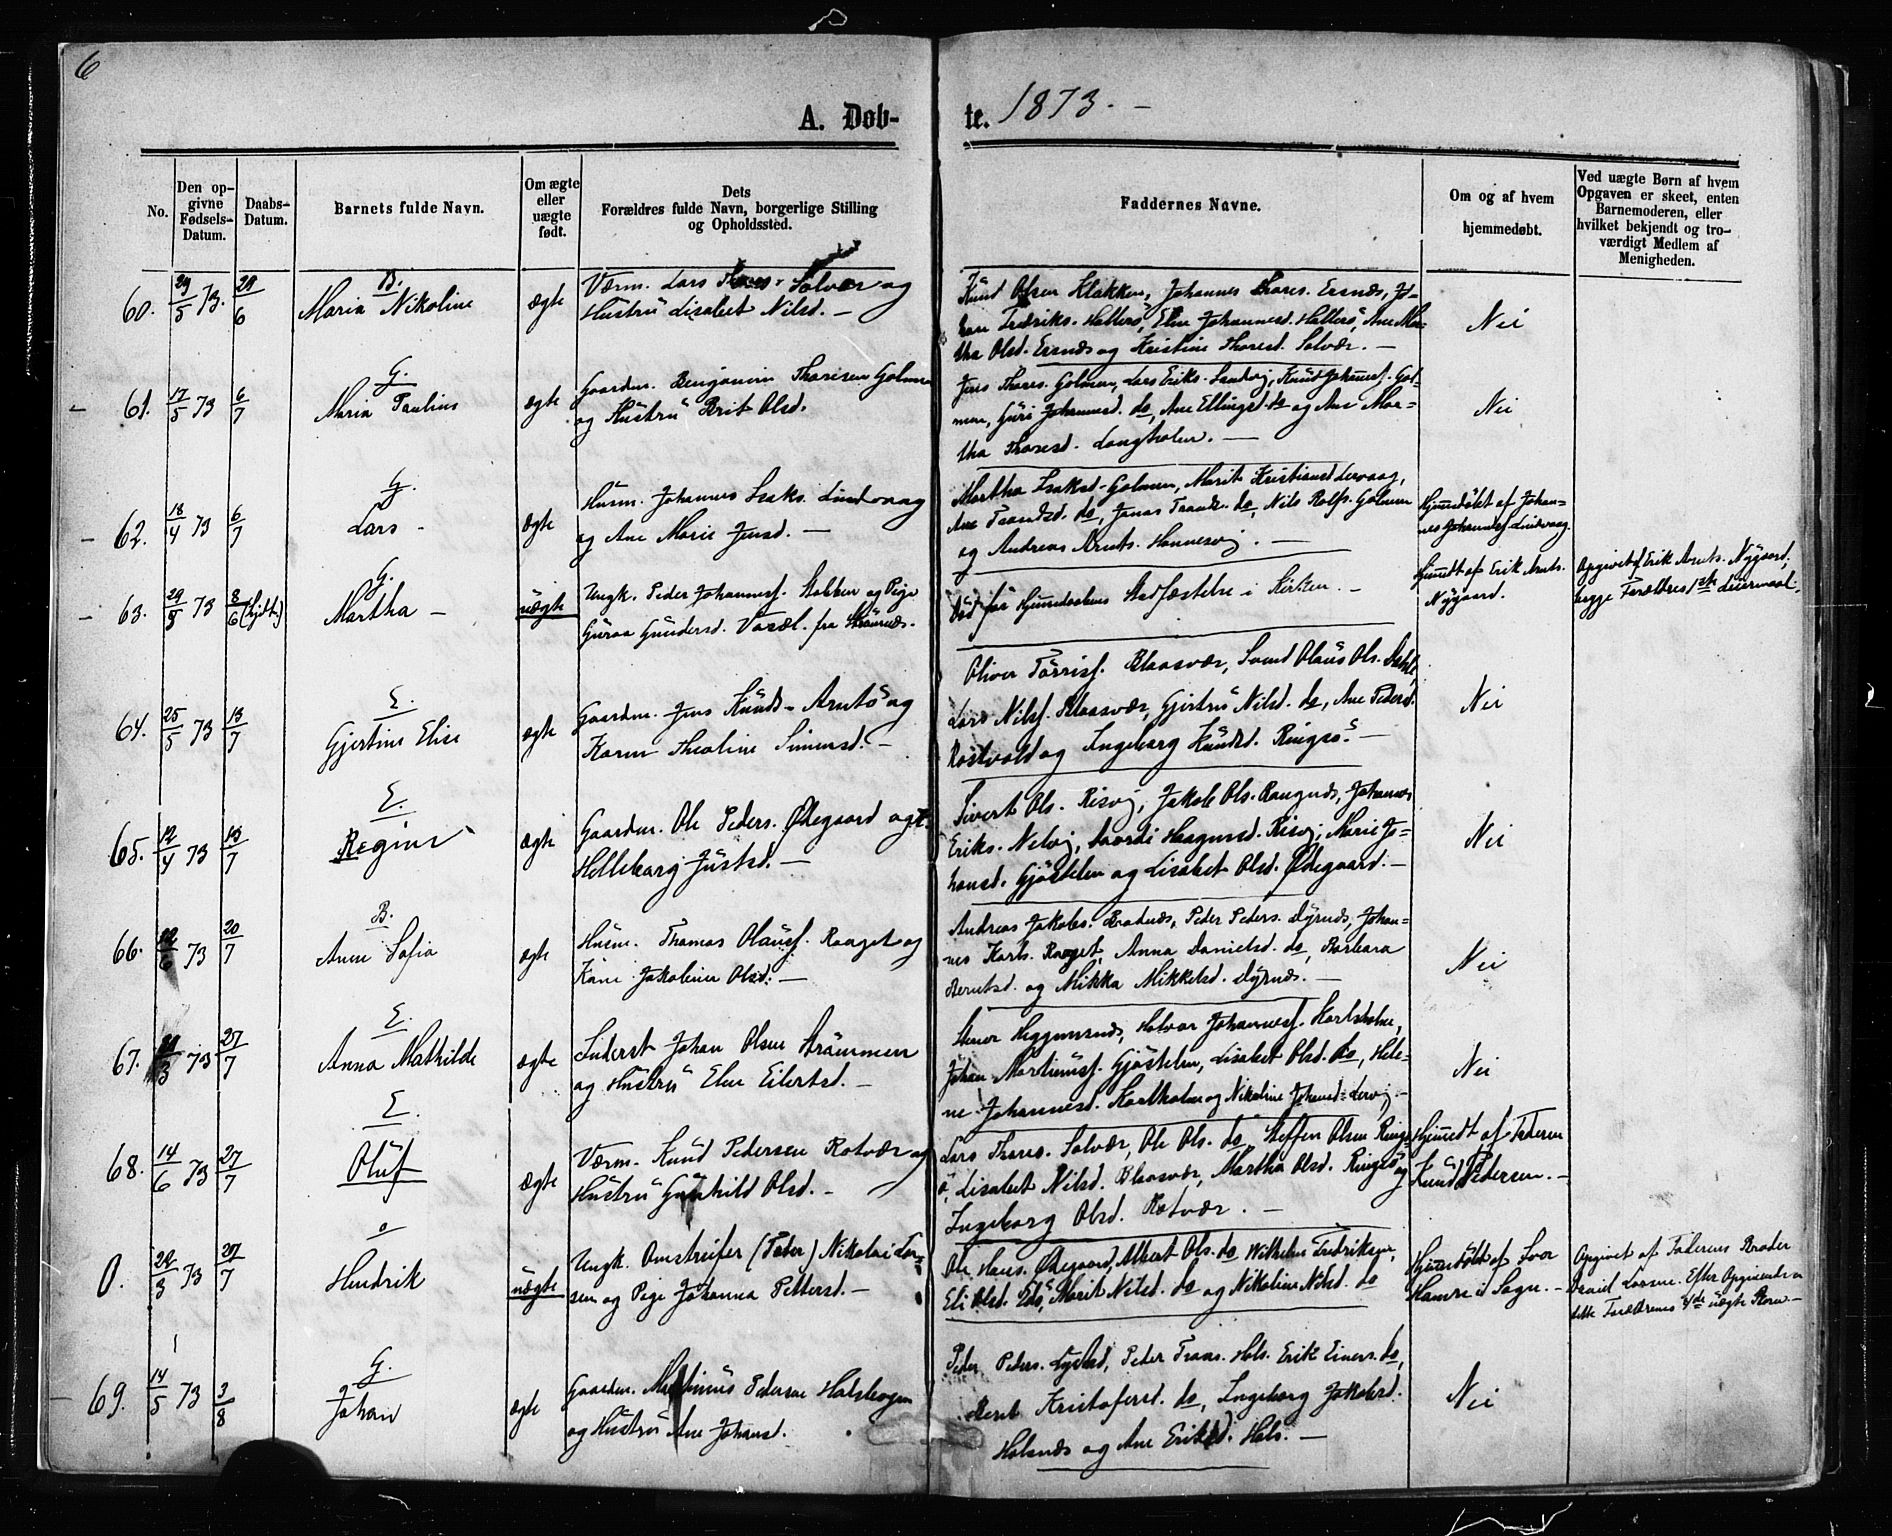 6
A. Døb-
te. 1873. -
No.
Den op-
givne
Fødsels-
Datum.
Daabs-
Datum.
Barnets fulde Navn.
Om ægte
eller
uægte
født.
Dets
Forældres fulde Navn, borgerlige Stilling
og Opholdssted.
Faddernes Navne.
Om og af hvem
hjemmedøbt.
Ved uægte Børn af hvem
Opgaven er skeet, enten
Barnemoderen, eller
hvilket bekjendt og tro-
værdigt Medlem af
Menigheden.
60. 29/5 73. 28/6
B.
Maria Nikoline
ægte
Værm. Lars Solvær og
Hustru Lisabet Nilsd. -
Knud Olsen Klakken, Johannes Thores. Ersnæs, Jo-
han Fredriks. Hallersö, Elen Johannesd. Hallersö, Ane Mar-
tha Olsd. Ersnæs og Kristine Thoresd. Solvær. -
Nei
- 61. 17/5 73 6/7
G.
Maria Paulina
ægte
Gaardm. Benjamin Thoresen Golmen
og Hustru Brit Olsd.
Jens Thores. Golmen, Lars Eriks. Sandvig, Knud Johannesf. Gol-
men, Guri Johannesd. do, Ane Ellingsd. do og Ane Mar-
tha Thoresd. Langholen. -
Nei
- 62. 18/4 73 6/7
G.
Lars -
ægte
Husm. Johannes Isaks. Lindvaag
og Ane Marie Jensd. -
Martha Isaksd. Golmen, Marit Kristiansd. Lervaag,
Ane Trondsd. do, Jonas Tronds. do, Nils Rolfs. Golmen
og Andreas Arnts. Hennesvig. -
Hjemmedøbt af Johan-
nes Johannesf. Lindvaag.
- 63. 29/5 73 8/6 (Hjdt.)
G.
Martha -
uægte
Ungk. Peder Johannesf. Stobben og Pige
Guraa Gundersd.
Död før Hjemmedaabens Stadfæstelse i Kirken. -
Hjmdt af Erik Arnts.
Nygaard.
Opgivet af Erik Arnts. Nygaard,
begge Forældres 1ste Leiermaal.
64. 25/5 73 13/7
E.
Gjertine Elise
ægte
Gaardm. Jens Knuds. Arntsö og
Karen Theoline Simensd. -
Oliver Torrisf. Blaasvær, Svend Olaus Ols.
Lars Nilsf. Blaasvær, Gjertru Nilsd. do, Ane Pedersd.
Rostvold og Ingeborg Knudsd. Ringsö. -
Nei
65. 12/4 73 13/7
E.
Regine
ægte
Gaardm. Ole Peders. Ødegaard og
Helleborg Justsd. -
Sivert Ols. Risvig, Jakob Ols. Rangnes, Johannes
Eriks. Nelvig, Haagensd. Risvig, Marie Jo-
hansd. Gjöstelen og Lisabet Olsd. Ødegaard. -
Nei
66. 73 20/7
B.
Anne Sofia
ægte
Husm. Thomas Olausf. Roaget og
Kone Jakobine Olsd. -
Andreas Jakobs. Bradnæs, Peder Peders. Dyrnæs, Johan-
nes Karls. Roaget, Anna Danielsd. do, Barbara
Berntsd. og Mikka Mikkelsd. Dyrnæs. -
Nei
67. 73 27/7
E.
Anna Mathilde
ægte
Inderst Johan Olsen Strömmen
og Hustru Elen Eilertsd. -
Halvor Johannesf. Karlsholm,
Johan Martinusf. Gjöstelen, Lisabet Olsd. do, Hele-
ne Johannesd. Karlholm og Nikoline Johansd. Lervig. -
Nei
68. 14/6 73 27/7
E.
Oluf
ægte
Værm. Knud Pedersen Rotvær og
Hustru Gunhild Olsd. -
Lars Thores. Solvær, Ole Ols. do, Steffen Olsen Rings-
ö, Lisabet Nilsd. Blaasvær, Martha Olsd. Ringsö og
Ingeborg Olsd. Rotvær. -
Hjemdt af Faderen
Knud Pedersen. -
0. 73 27/7
Hendrik
uægte
Ungk. Omstreifer (Fader) Nikolai Lar-
sen og Pige Johanna Pettersd. -
Ole Hans. Ødegaard, Albert Ols. do, Wilhelm Fredriksen,
Eli Olsd. Edö, Marit Nilsd. do og Nikoline Nilsd. do
Hjemdøbt af Ivar
Hamre i Sogn. -
Opgivet af Faderens Broder
David Larsen. Efter Opgivende er
dette Forældrenes 4de uægte Barn -
- 69. 14/5 73 3/8
G.
Johan
ægte
Gaardm. Martinus Pedersen Halsbogen
og Hustru Ane Johansd.
Peder Peders. Lystad, Peder Frans. Hals. Erik Einers. do,
Beret Kristofersd. do, Ingeborg Jakobsd.
Holsnæs og Ane Eriksd. Hals. -
Nei